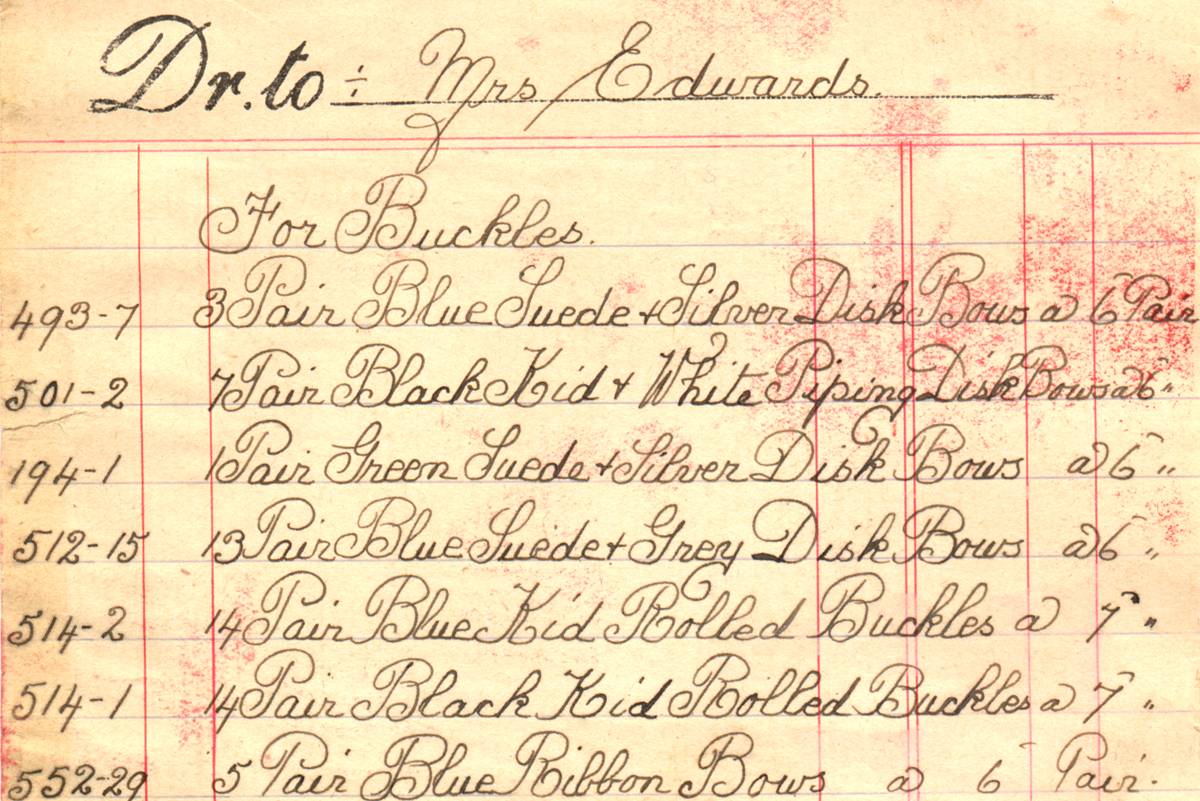 Dr. to ÷ Mrs Edwards.
For Buckles.
493-7 3 Pair Blue Suede + Silver Disk Bows a 6 Pair
501-2 7 Pair Black Kid + White Piping Disk Bows a 6 "
194-1 1 Pair Green Suede + Silver Disk Bows a 6 "
512-15 13 Pair Blue Suede + Grey Disk Bows a 6 "
514-2 14 Pair Blue Kid Rolled Buckles a 7 "
514-1 14 Pair Black Kid Rolled Buckles a 7 "
552-29 5 Pair Blue Ribbon Bows a 6 Pair.